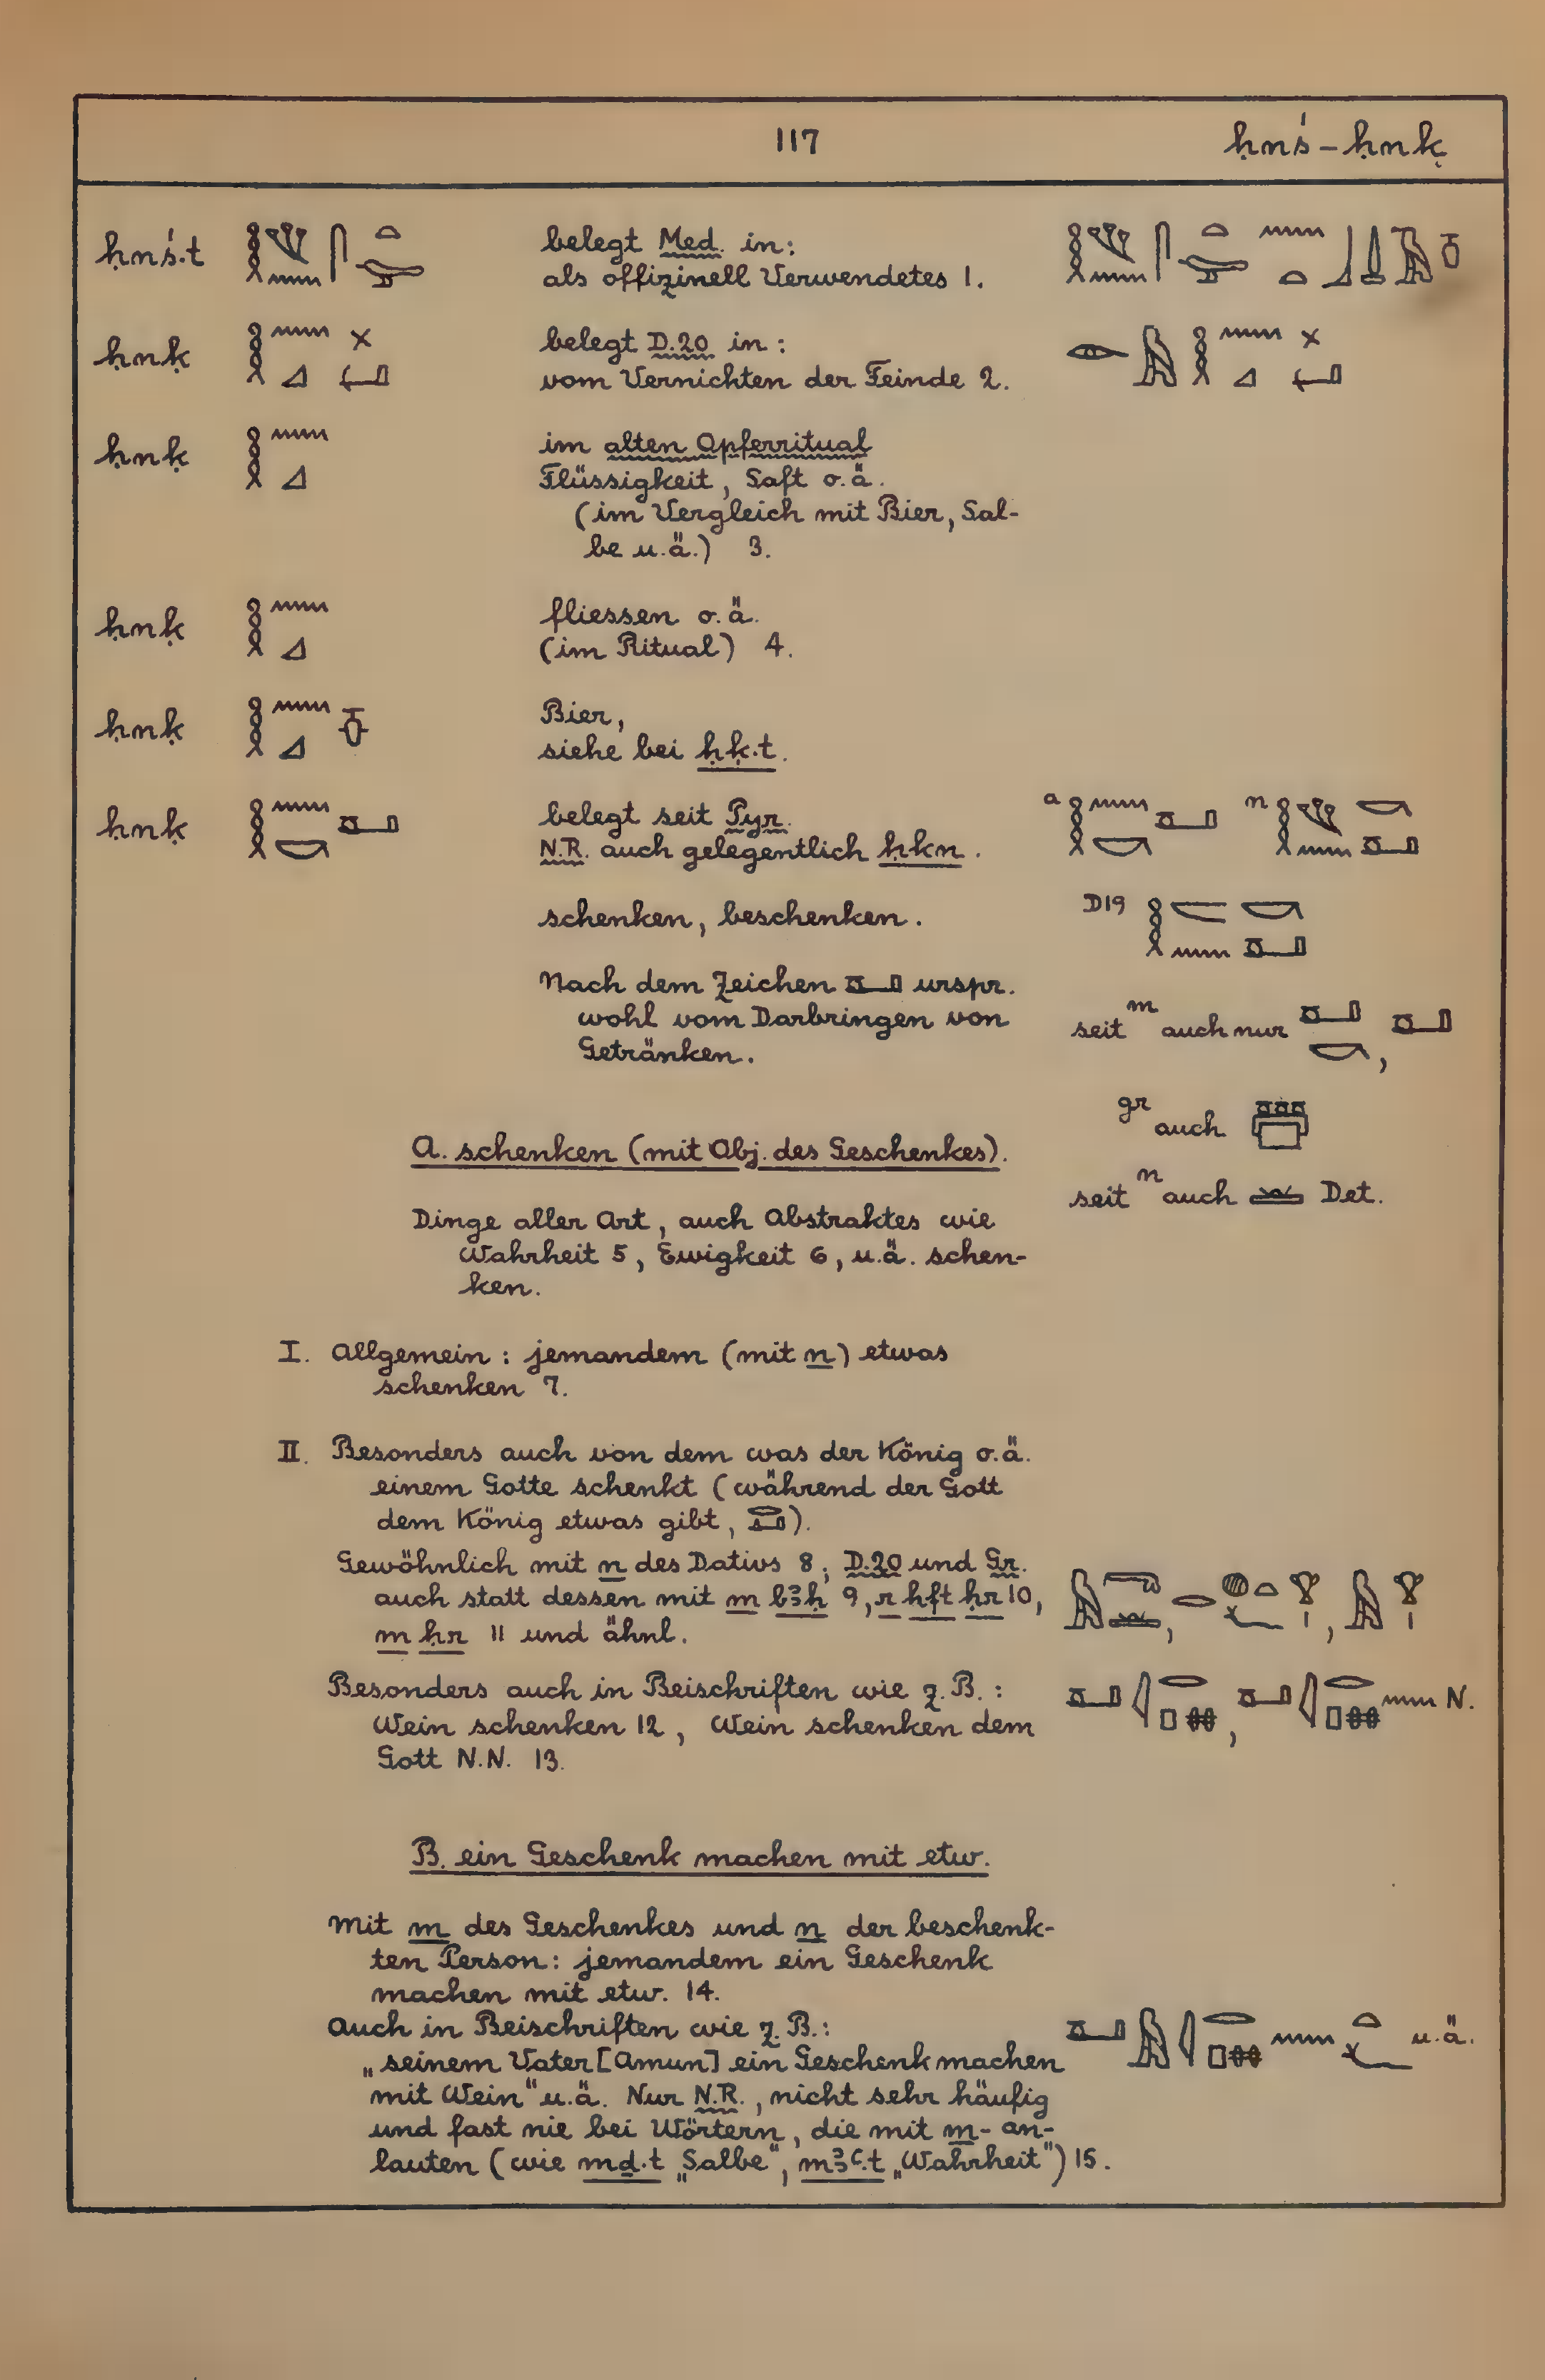 117
ḥnś – ḥnḳ
ḥnś.t
belegt Med. in:
als offizinell Verwendetes 1.
ḥnḳ
belegt D.20 in:
vom Vernichten der Feinde 2.
ḥnḳ
im alten Opferritual
Flüssigkeit, Saft o.ä.
(im Vergleich mit Bier, Sal-
be u.ä.) 3.
ḥnḳ
fliessen o.ä.
(im Ritual) 4.
ḥnḳ
Bier,
siehe bei ḥḳ.t.
ḥnk
belegt seit Pyr.
N.R. auch gelegentlich ḥkn.
a
n
schenken, beschenken.
D19
Nach dem Zeichen 𓂠 urspr.
wohl vom Darbringen von
Getränken.
seit m auch nur
gr auch
seit n auch Det.
A. schenken (mit Obj. des Geschenkes).
Dinge aller Art, auch Abstraktes wie
Wahrheit 5, Ewigkeit 6, u.ä. schen-
ken.
I. Allgemein: jemandem (mit n) etwas
schenken 7.
II. Besonders auch von dem was der König o.ä.
einem Gotte schenkt (während der Gott
dem König etwas gibt, ).
Gewöhnlich mit n des Dativs 8; D.20 und Gr.
auch statt dessen mit m bꜣḥ 9, r ḫft ḥr 10,
m ḥr 11 und ähnl.
Besonders auch in Beischriften wie z.B.:
N.
Wein schenken 12, Wein schenken dem
Gott N.N. 13.
B. ein Geschenk machen mit etw.
Mit m des Geschenkes und n der beschenk-
ten Person: jemandem ein Geschenk
machen mit etw. 14.
Auch in Beischriften wie z.B.:
u.ä.
„seinem Vater [Amun] ein Geschenk machen
mit Wein" u.ä. Nur N.R., nicht sehr häufig
und fast nie bei Wörtern, die mit m- an-
lauten (wie mḏ.t „Salbe", mꜣꜥ.t „Wahrheit") 15.